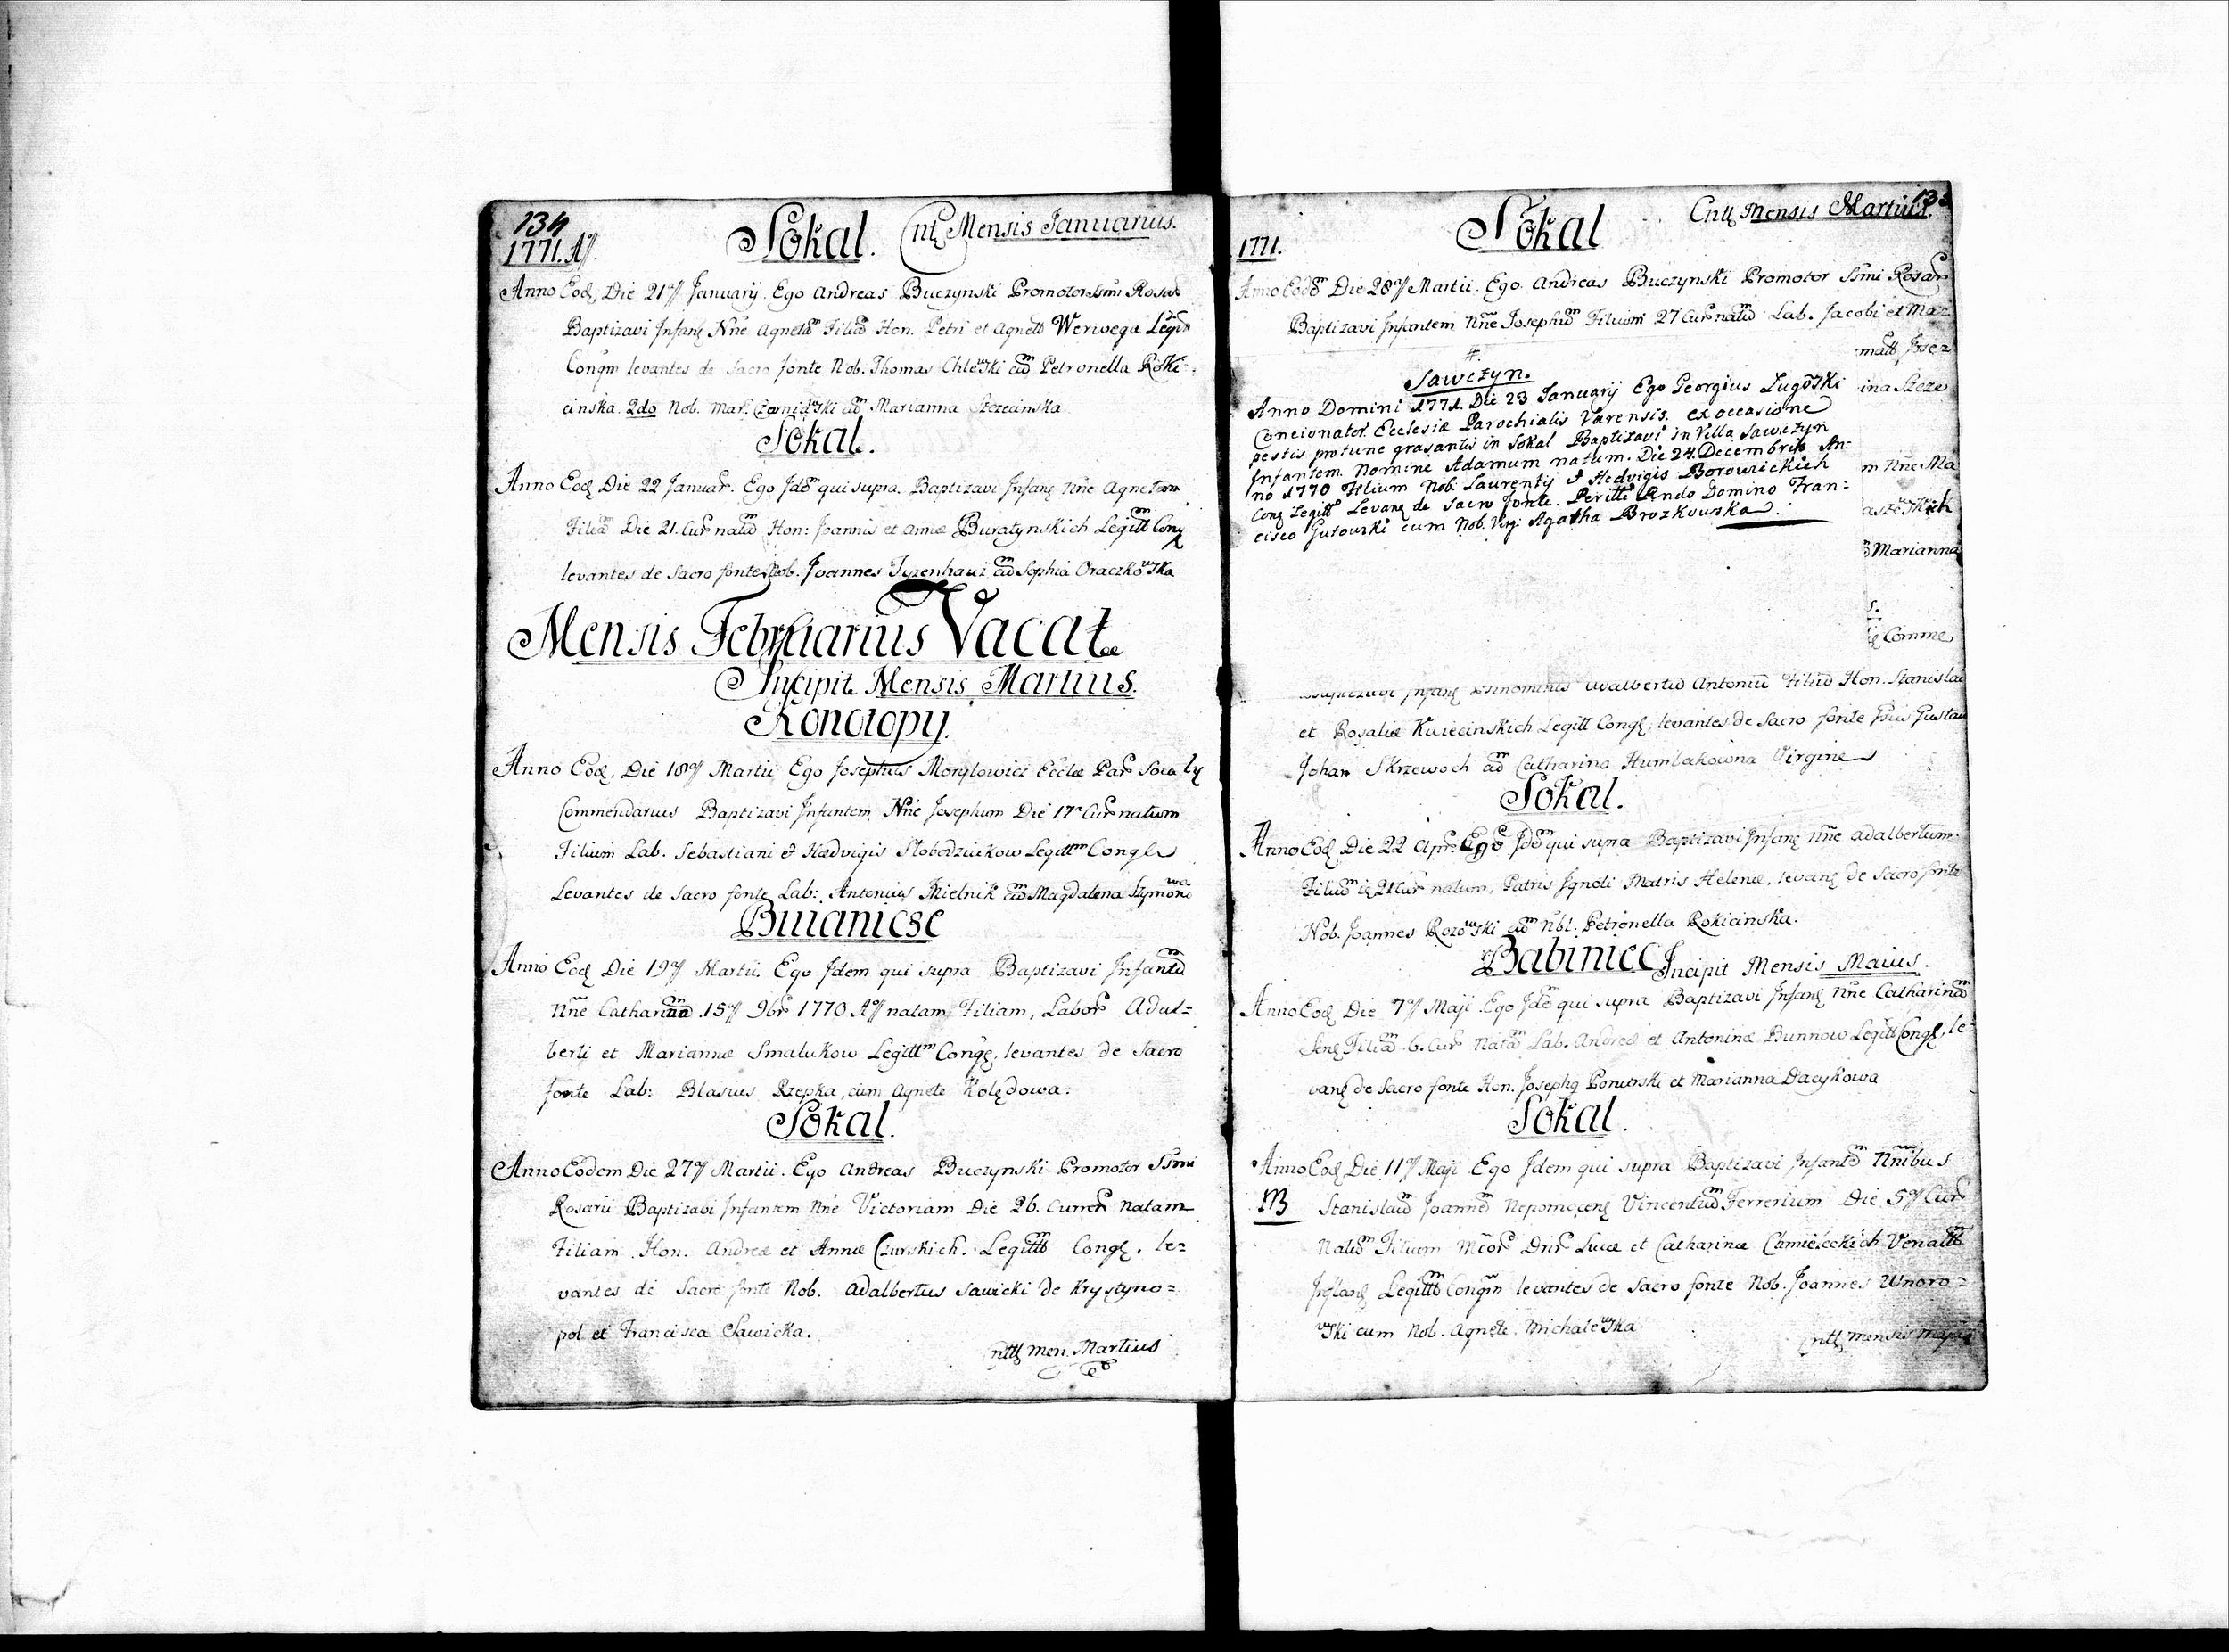 134
1771. Aº
Sokal. Cntꝫ Mensis Januarius.
Anno Eodꝫ Die 21ª Januarij. Ego Andreas Buczynski Promotor Ssmi Rosar
Baptizavi Infanꝫ Nñe Agnetam Filiam Hon. Petri et Agnetis Werwega Legitt
Congm levantes de Sacro fonte Nob. Thomas Chlewski cum Petronella Roki-
cinska. 2do Nob. Mar. Czerniawski cum Marianna Szczecinska
Sokal.
Anno Eodꝫ Die 22 Januar. Ego Idem qui supra Baptizavi Infanꝫ Nñe Agnetam
Filiam Die 21. Cur natam Hon: Joannis et Annæ Buratynskich Legitt Conꝫ
levantes de Sacro fonte Nob. Joannes Tyzenhaui cum Sophia Oraczkowska
Mensis Februarius Vacat
Incipit Mensis Martius.
Konotopy.
Anno Eod. Die 18ª Martii Ego Josephus Morylowicz Ecclæ Par Socaly
Commendarius Baptizavi Infantem Nñe Josephum Die 17ª Cur natum
Filium Lab. Sebastiani & Hædvigis Slobodziukow Legittm Congꝫ
Levantes de Sacro fonte Lab: Antonius Mielnik cum Magdalena Szymonowa
Buianicze
Anno Eodꝫ Die 19ª Martii. Ego Idem qui supra Baptizavi Infantem
Nñe Catharinam 15ª 9br 1770 Aº natam Filiam, Labor Adal=
berti et Mariannæ Smalukow Legittm Congꝫ. levantes de Sacro
fonte Lab: Blasius Rzepka, cum Agnete Kolędowa.
Sokal.
Anno Eodem Die 27ª Martii. Ego Andreas Buczynski Promotor Ssmi
Rosarii Baptizavi Infantem Nñe Victoriam Die 26. Curren natam
Filiam Hon. Andreæ et Annæ Czurskich. Legittm Congꝫ. le=
vantes de Sacro fonte Nob. Adalbertus Sawicki de Krystyno=
pol et Francisca Sawicka.
nttꝫ men. Martius
Sokal Cntꝫ Mensis Martius. 135
1771.
Anno Eodem Die 28ª Martii. Ego Andreas Buczynski Promotor Ssmi Rosar
Baptizavi Infantem Nñe Josephum Filium 27 Cur natum Lab. Jacobi et Mar
matt Jose=
Sawczyn.
ina Szcze
Anno Domini 1771. Die 23 Januarij Ego Georgius Lugowski
Concionator Ecclesiæ Parochialis Varensis. ex occasione
pestis protunc grasantis in Sokal Baptizavi in Villa Sawczyn
Infantem Nomine Adamum natum. Die 24. Decembris An:
m Nñe Ma
no 1770 Filium Nob: Laurentij & Hedvigis Borowickich
Conꝫ Legitt Levanꝫ de Sacro fonte. Peritti Rndo Domino Fran=
cisco Gutowski cum Nob. Virg: Agatha Brozkowska.
aszewskich
Marianna
s.
Comme
Baptizavi Infanꝫ Binominis Adalbertum Antonium Filium Hon. Stanislai
et Rosaliæ Kwiecinskich Legitt Congꝫ. levantes de Sacro fonte Gustav
Johan Skrzewoch cum Catharina Humlakowna Virgine
Sokal.
Anno Eodꝫ Die 22 Apr. Ego Idem qui supra Baptizavi Infanꝫ Nñe Adalbertum
Filium 21 Cur natum, Patris Ignoti Matris Helenæ, levanꝫ de Sacro fonte
Nob. Joannes Rozowski cum Nbl. Petronella Rokicinska.
Babiniec Incipit Mensis Maius.
Anno Eodꝫ Die 7ª Maji. Ego Idem qui supra Baptizavi Infanꝫ Nñe Catharinam
Filiam 6. Cur Natam Lab. Andreæ et Antoninæ Bunnow Legitt Congꝫ. le=
vanꝫ de Sacro fonte Hon. Josephꝫ Ponurski et Marianna Dacykowa
Sokal.
Anno Eodꝫ Die 11ª Maji Ego Idem qui supra Baptizavi Infantem Nñibus
Stanislaum Joannem Nepomocenꝫ Vincentium Ferrerium Die 5ª Cur
Natum Filium Mcor Dnr Lucæ et Catharinæ Chmieleckich Venatt
Legittm Congm levantes de Sacro fonte Nob. Joannes Unoro=
wski cum Nob. Agnete Michalewska
nttꝫ mensis Majus